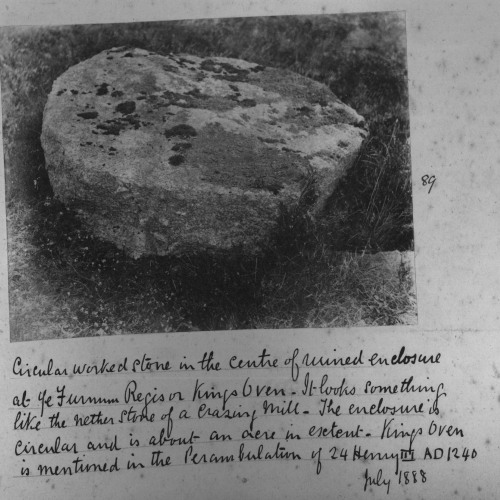 89
Circular worked stone in the centre of ruined enclosure
at ye Furnum Regis or Kings Oven - It looks something
like the nether stone of a Crazing Mill - The enclosure is
circular and is about an acre in extent - Kings Oven
is mentioned in the Perambulation of 24 Henry III AD 1240
July 1888